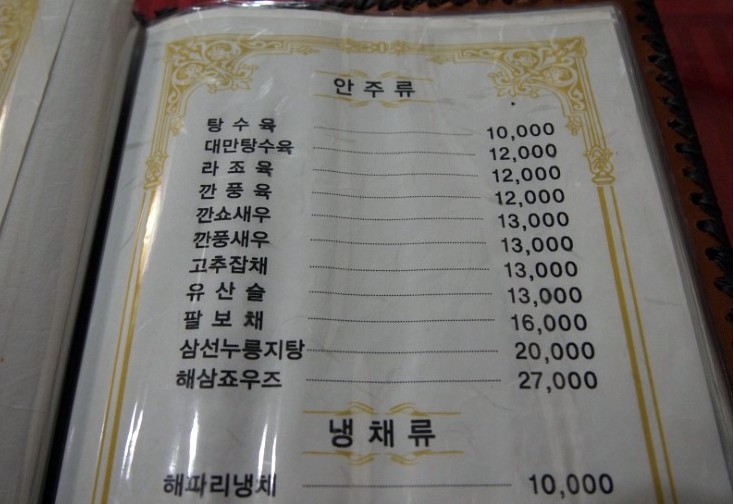 안주류
탕수육 10,000
대만탕수육 12,000
라조육 12,000
깐풍육 12,000
깐쇼새우 13,000
깐풍새우 13,000
고추잡채 13,000
유산슬 13,000
팔보채 16,000
삼선누룽지탕 20,000
해삼죠우즈 27,000
냉채류
해파리냉채 10,000